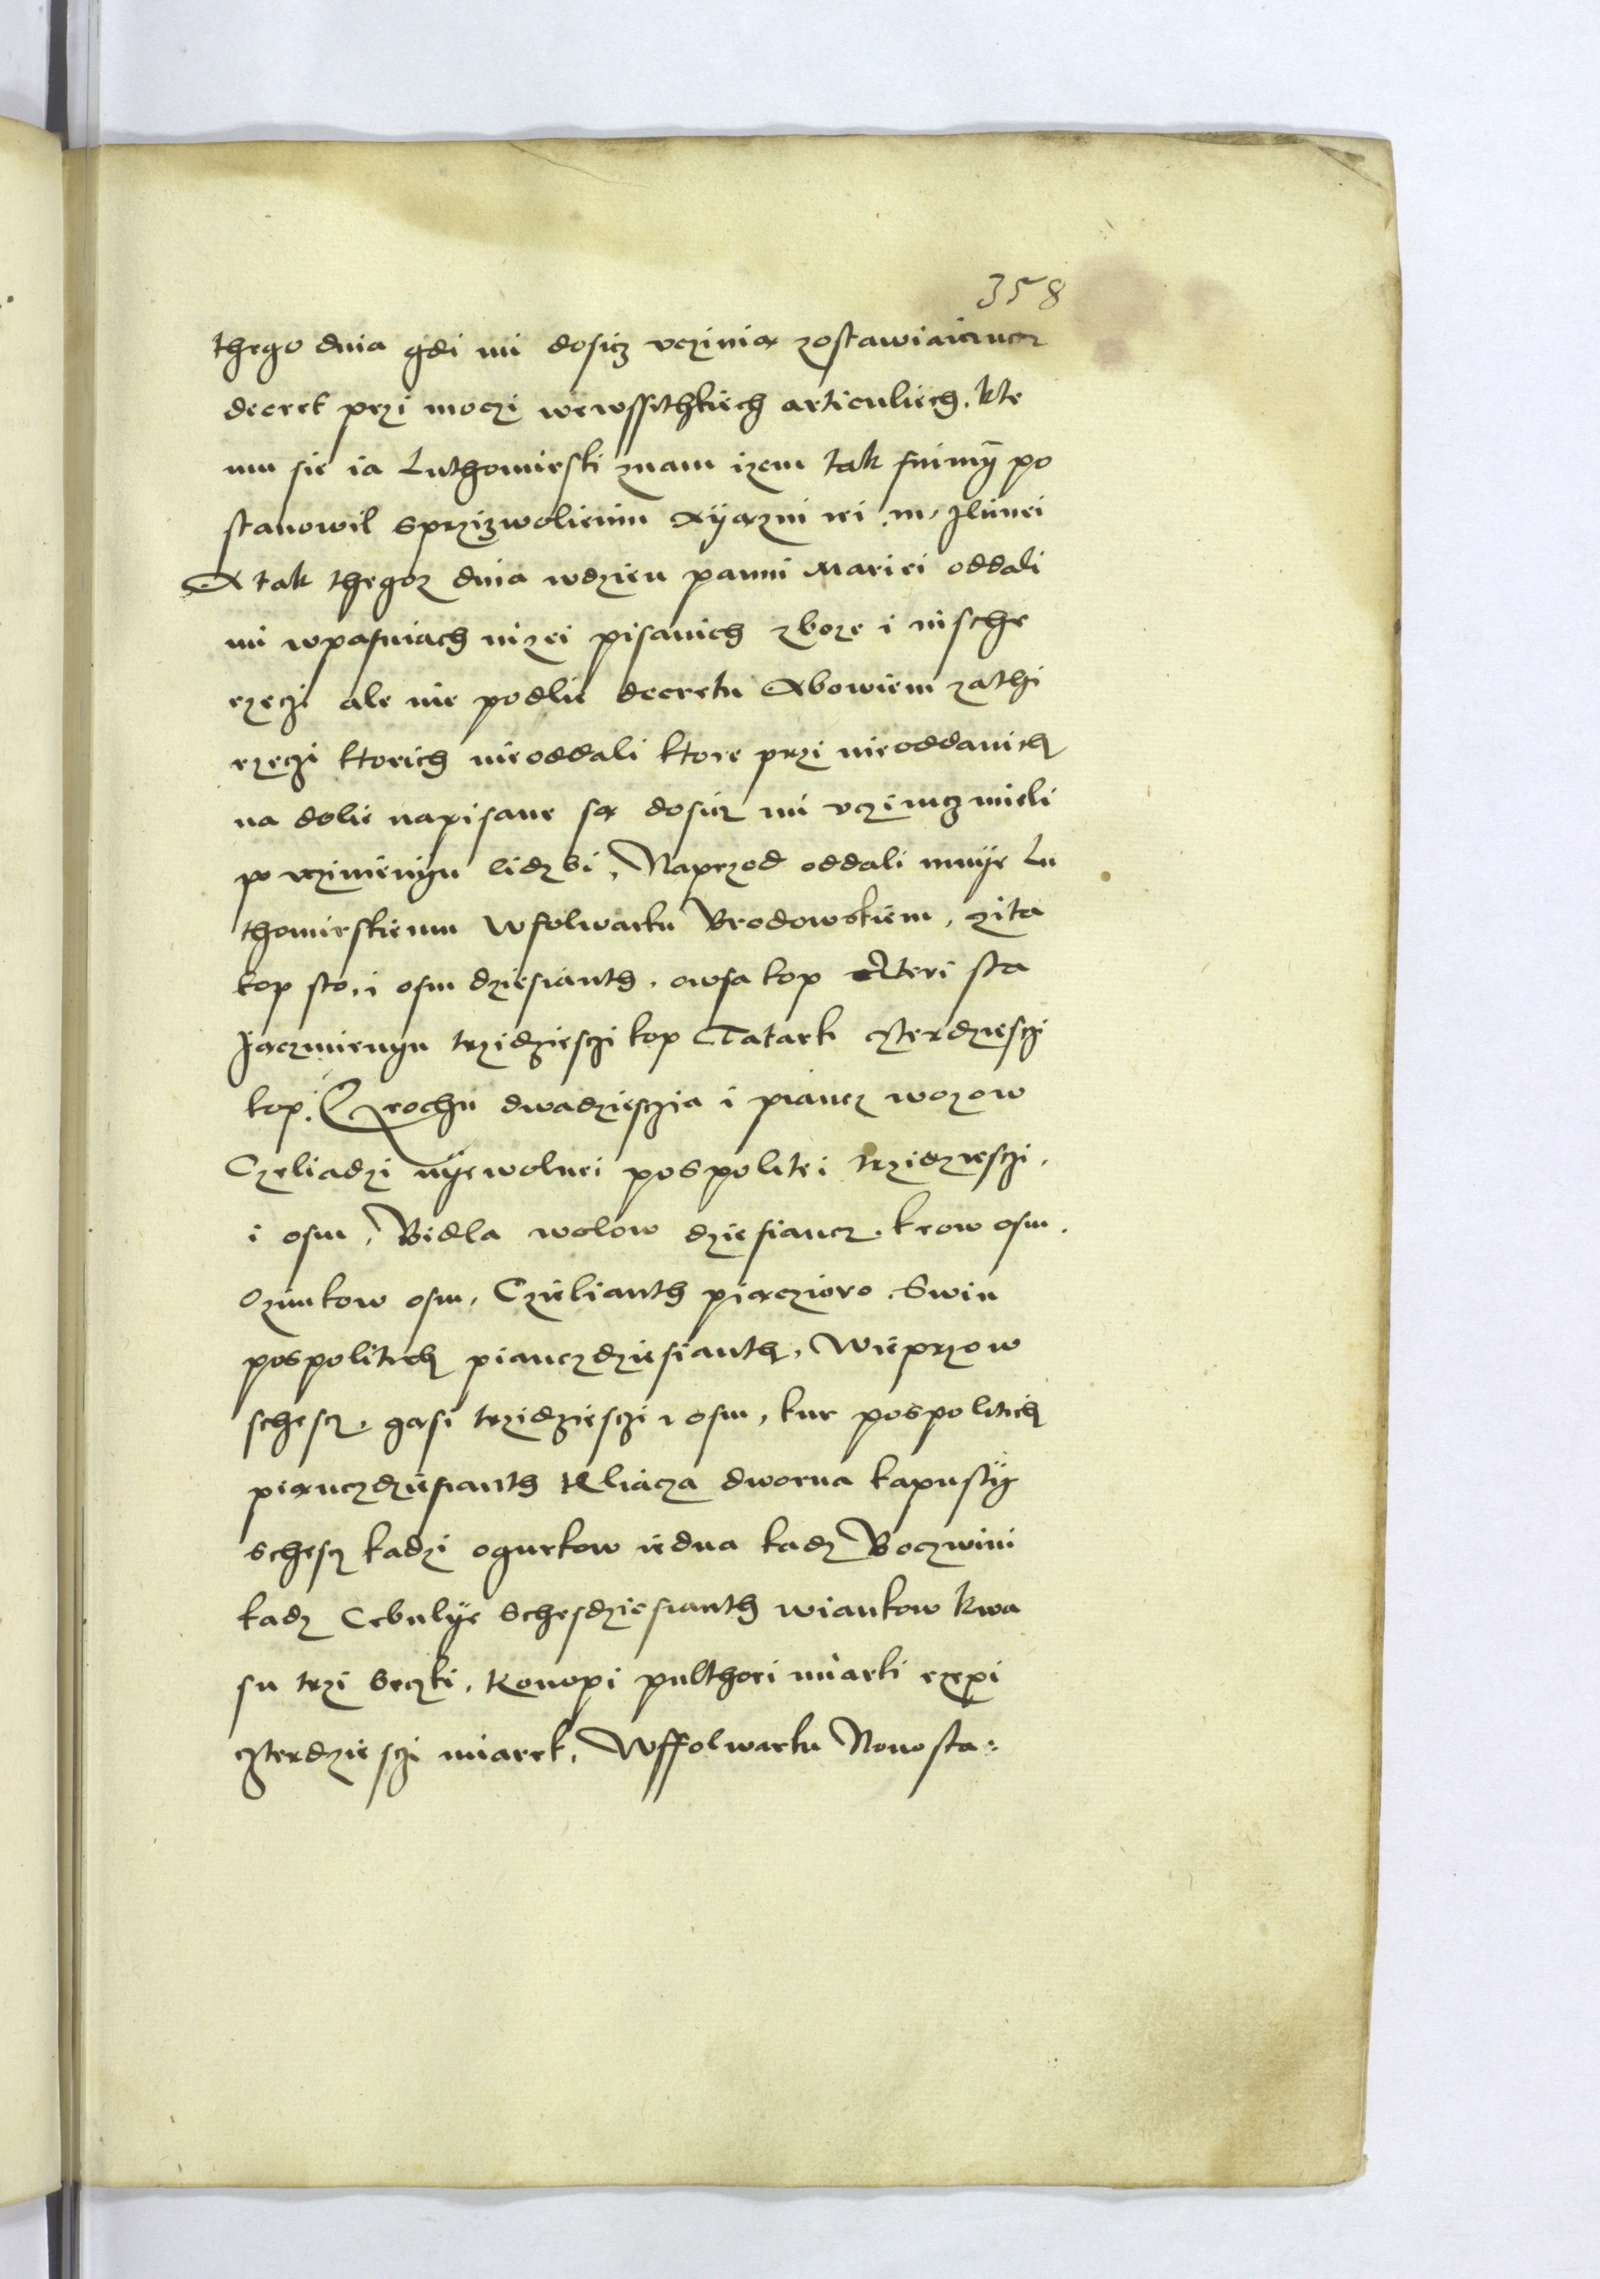 358
thego dnia gdi mi dosicz vczinia zostawiaiancz
decret przi moczi wewssithkiech articuliech. kte
mu sie ia Luthomirski znam izem tak snimy po
stanowil sprzizwolienim Xyazni iei m. Ilinei
A tak thegoz dnia wdzien panni Mariei oddali
mi wpasniach nizei pisanich zboze i insche
rzeczi ale nie podlie decretu Abowiem zathi
rzeczi ktorich nieoddali ktore przi nieoddanich
na dolie napisane sa dosicz mi vczinicz mieli
po vczinienyu lidzbi, Naprzod oddali mnye Lu
thomirskiemu Wfolwarku Brodowskiem, zita
kop sto, i osm dziesianth, owsa kop cztteri sta
Jaczmienyu trzidziesczi kop Tatark czterdziesczi
kop. Grochu dwadziesczia i piancz wozow
Czeliadzi nyewolnei pospolitei trzidziesczi,
i osm, Bidla wolow dziesiancz, krow osm,
Ozimkow osm, Czielianth piaczioro, Swin
pospolitich pianczdziesianth, Wieprzow
schescz, gasi trzidziesczi i osm, kur pospolitich
pianczdziesianth Kliacza dworna kapusty
schescz kadzi ogurkow iedna kadz Boczwini
kadz Cebulye schesdziesianth wiankow kwa
su trzi beczki, Konopi pulthori miarki rzepi
czterdziesczi miarek, Wffolwarku Nouosta: